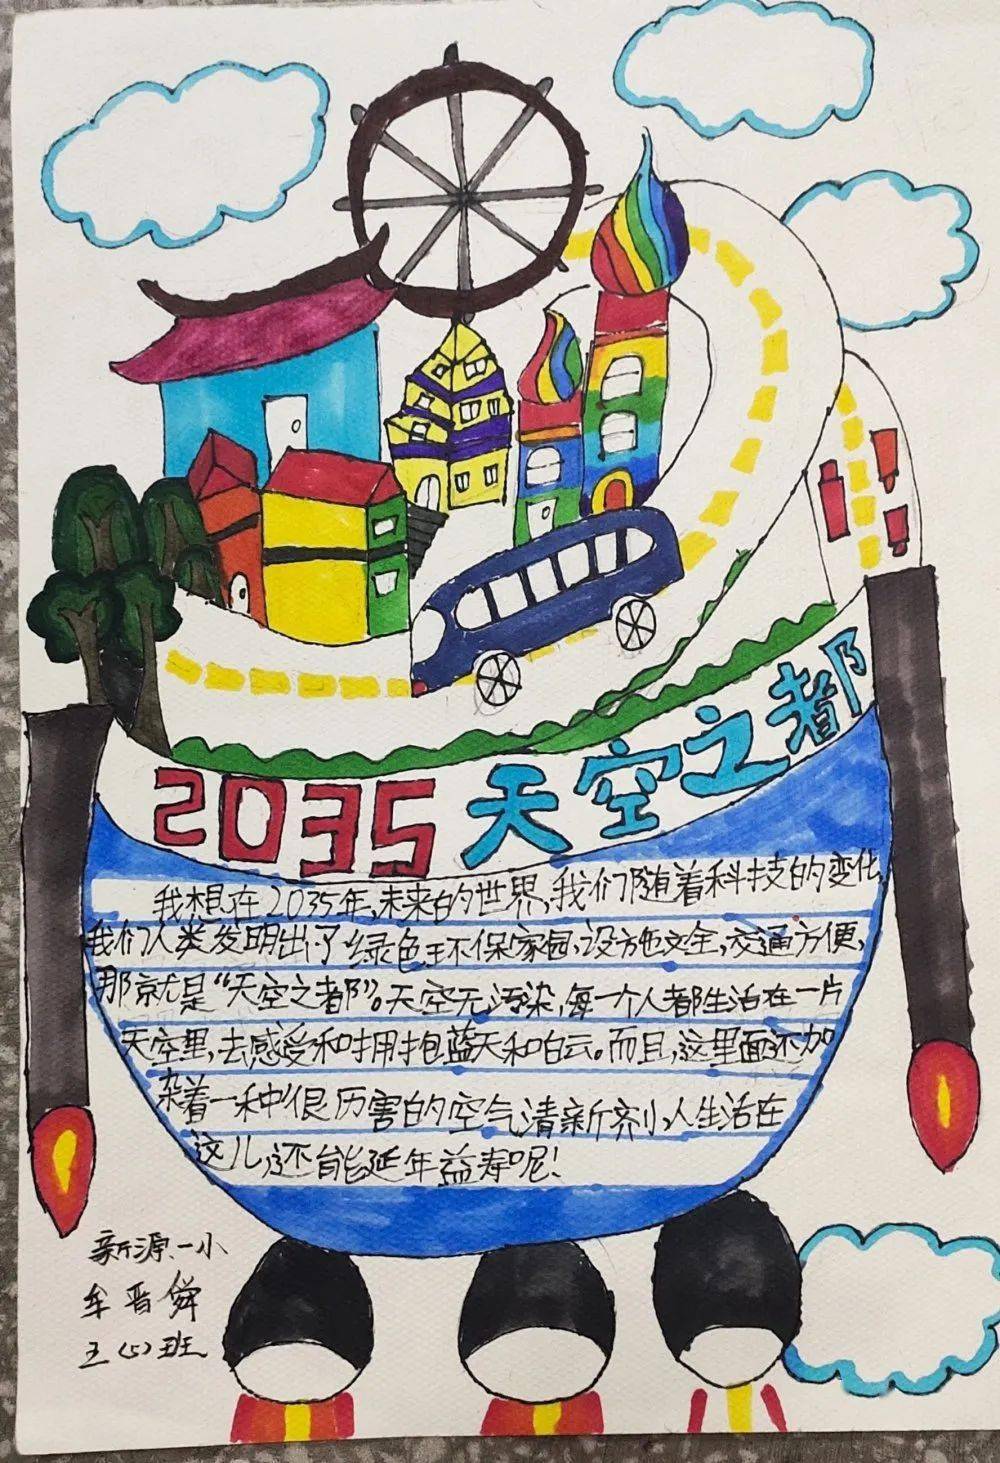 2035天空之都
我想在2035年,未来的世界,我们随着科技的变化,
我们人类发明出了绿色环保家园,设施文全,交通方便,
那就是“天空之都”。天空无污染,每一个人都生活在一片
天空里,去感受和拥抱蓝天和白云。而且,这里面还加
杂着一种很厉害的空气清新齐小,人生活在
这儿,还能延年益寿呢!
新源一小
牟晋舜
五(5)班